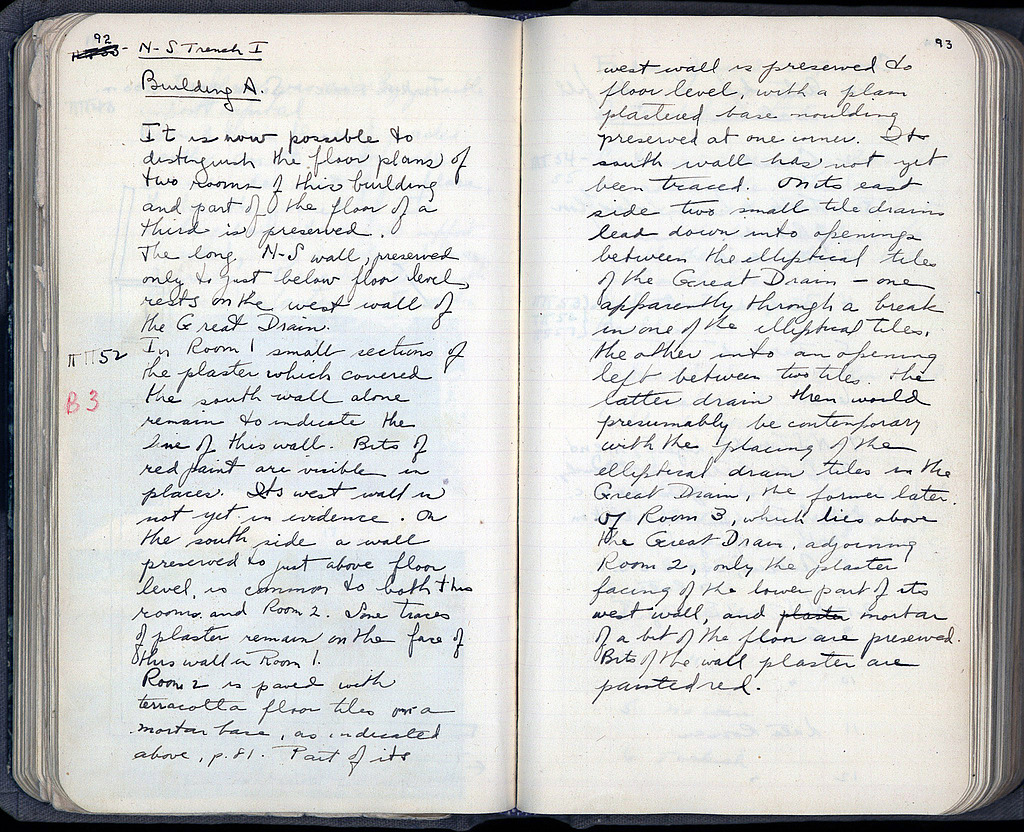 92
N-S Trench I
Building A.
It is now possible to
distinguish the floor plans of
two rooms of this building
and part of the floor of a
third is preserved.
The long N-S wall, preserved
only to just below floor level,
rests on the west wall of
the Great Drain.
ΠΠ52
In Room 1 small sections of
the plaster which covered
B3
the south wall alone
remain to indicate the
line of this wall. Bits of
red paint are visible in
places. Its west wall is
not yet in evidence. On
the south side a wall
preserved to just above floor
level, is common to both this
room and Room 2. Some traces
of plaster remain on the face of
this wall in Room 1.
Room 2 is paved with
terracotta floor tiles on a
mortar base, as indicated
above, p. 81. Part of its
93
west wall is preserved to
floor level, with a plain
plastered base moulding
preserved at one corner. Its
south wall has not yet
been traced. On its east
side two small tile drains
lead down into openings
between the elliptical tiles
of the Great Drain – one
apparently through a break
in one of the elliptical tiles,
the other into an opening
left between two tiles. The
latter drain then would
presumably be contemporary
with the placing of the
elliptical drain tiles in the
Great Drain, the former later.
Of Room 3, which lies above
the Great Drain, adjoining
Room 2, only the plaster
facing of the lower part of its
west wall, and plaster mortar
of a bit of the floor are preserved.
Bits of the wall plaster are
painted red.